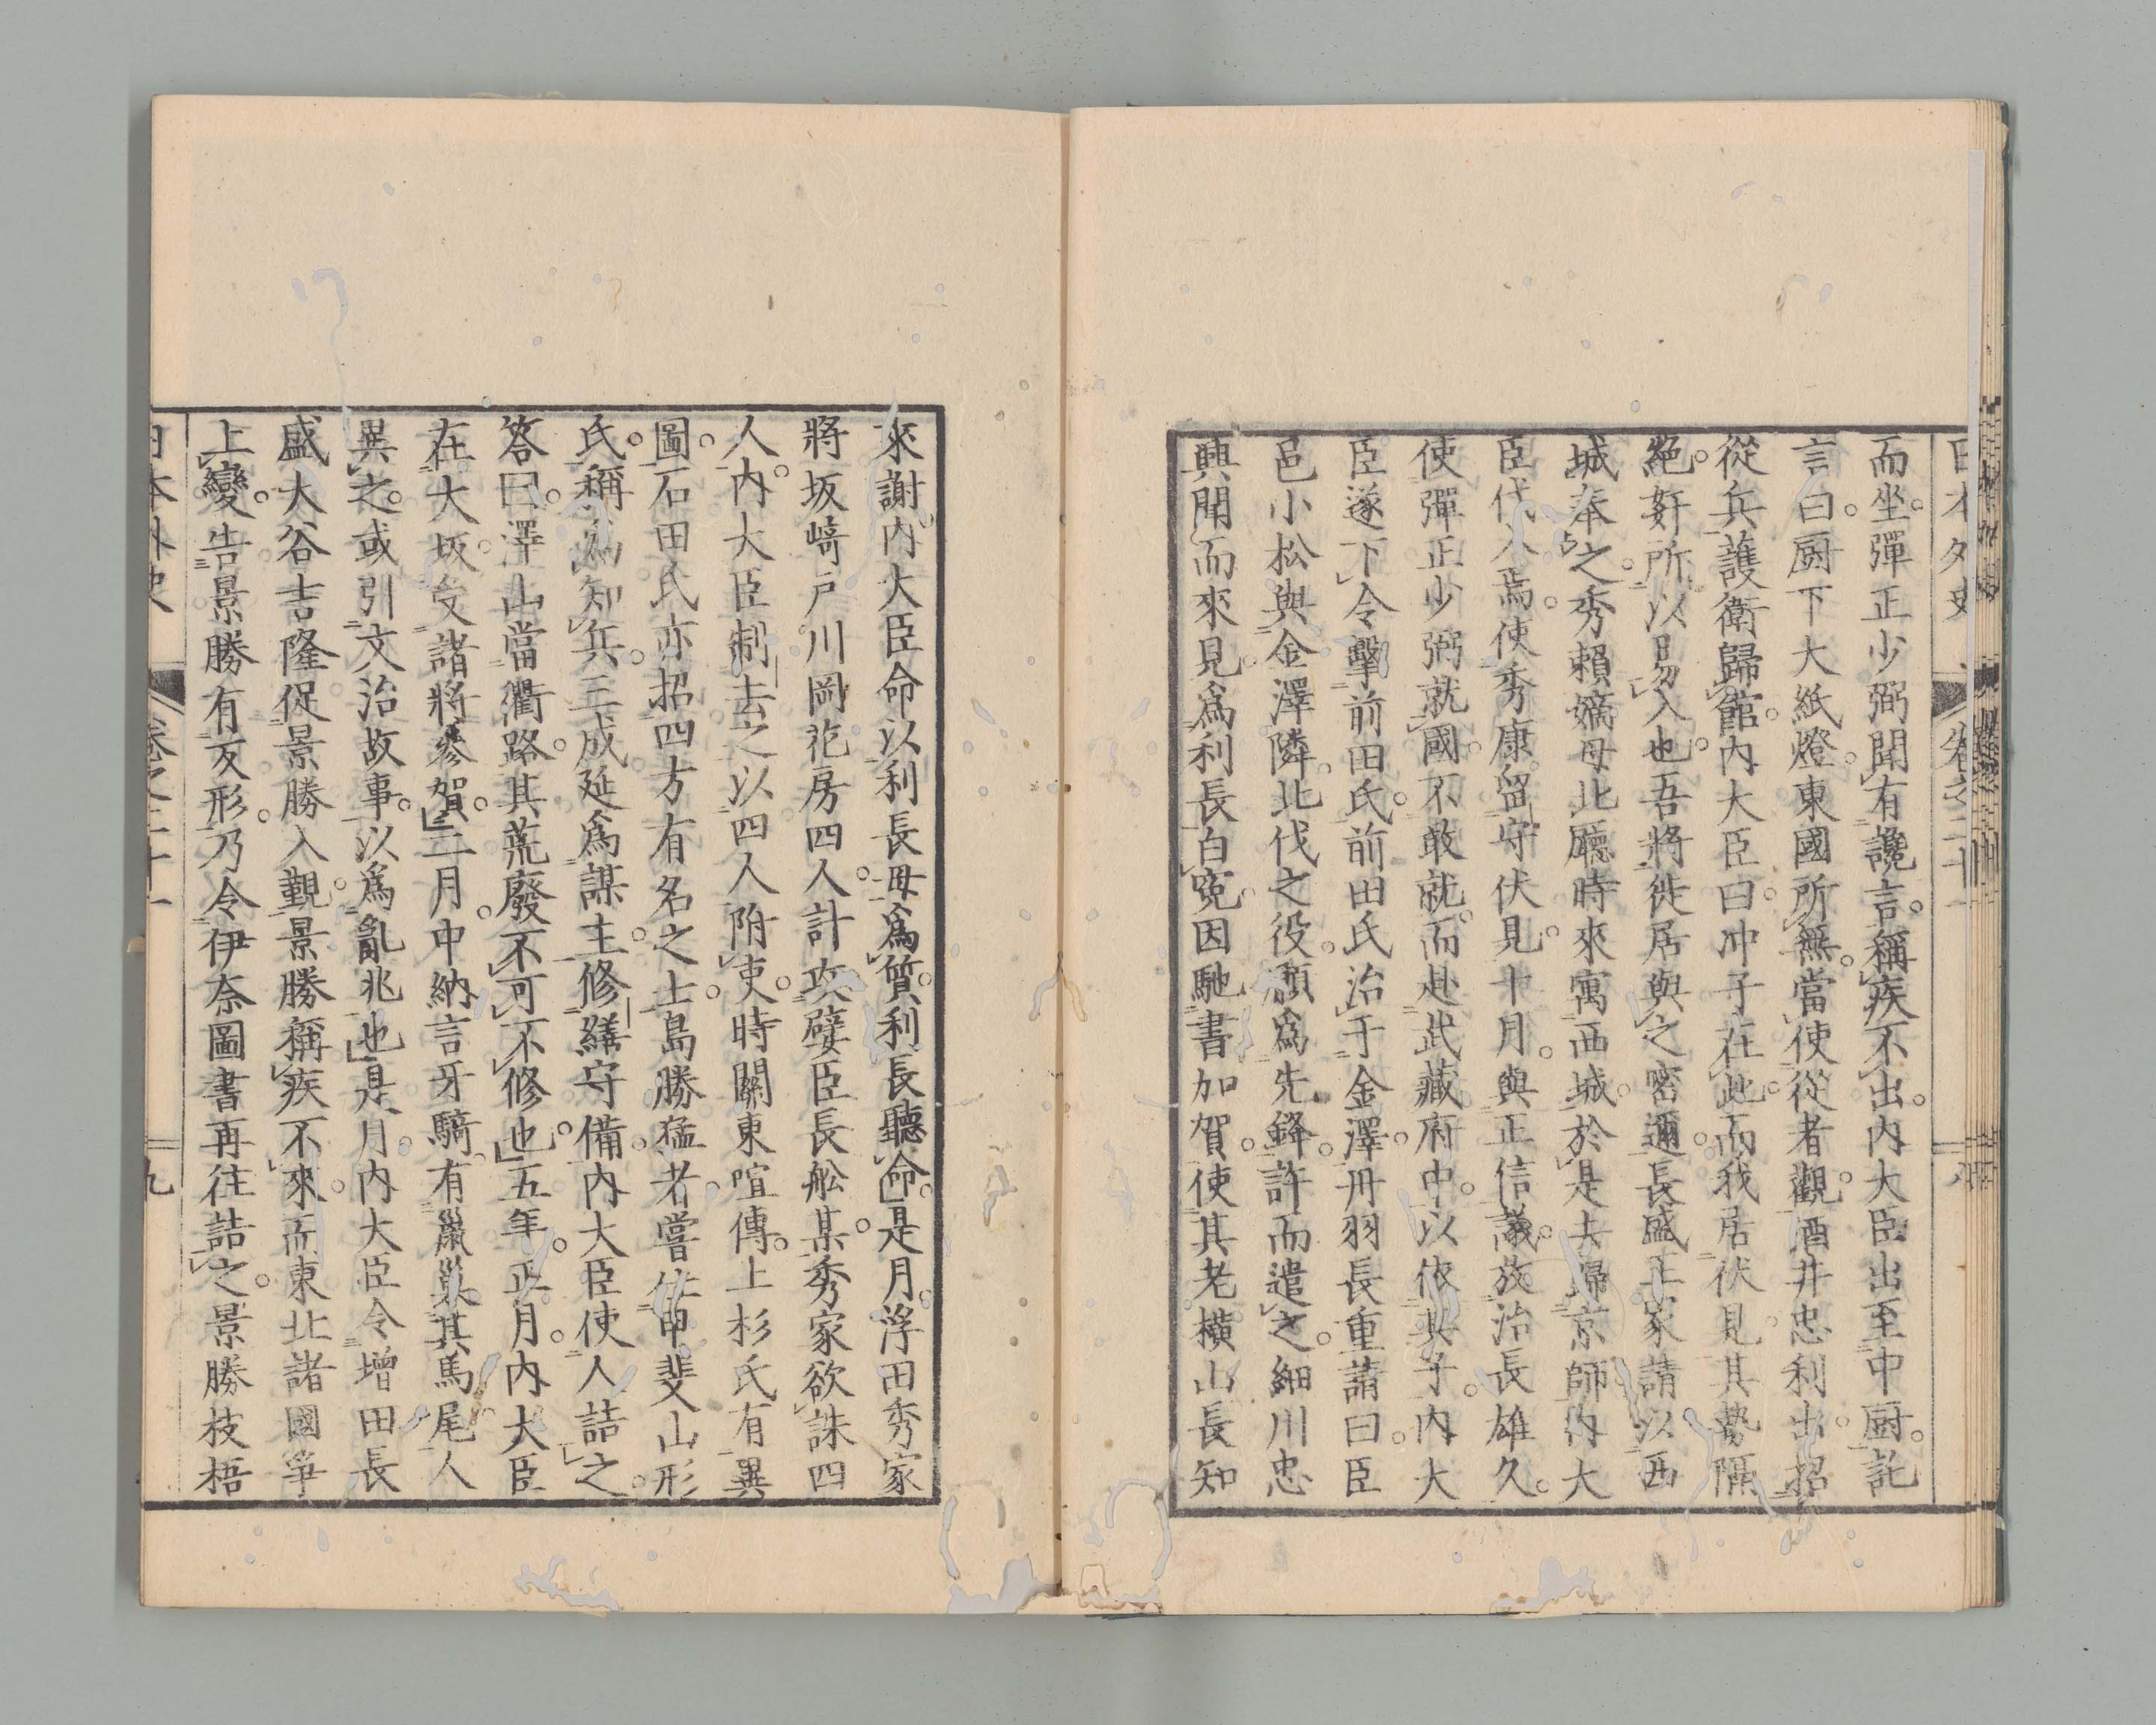 日本外史 卷之二十一 八
而坐。彈正少弼聞有讒言。稱疾不出。內大臣出至中厨。託
言曰。厨下大紙燈。東國所無。當使從者觀。酒井忠利出。招
從兵。護衛歸館。內大臣曰。冲子在此。而我居伏見。其勢隔
絕。姧所以易入也。吾將徙居與之密邇。長盛正家請以西
城奉之。秀賴嫡母北廳時來寓西城。於是去歸京師。內大
臣代入焉。使秀康留守伏見。十月。與正信議。放治長雄久。
使彈正少弼就國。不敢就。而赴武藏府中。以依其子。內大
臣遂下令擊前田氏。前田氏治于金澤。丹羽長重請曰。臣
邑小松與金澤隣。北伐之役。願爲先鋒。許而遣之。細川忠
興聞而來見。爲利長白寃。因馳書加賀。使其老橫山長知
來謝。內大臣命以利長母爲質。利長聽命。是月。浮田秀家
將坂﨑戶川岡花房四人。計攻嬖臣長舩某。秀家欲誅四
人。內大臣制去之。以四人附吏。時關東喧傳。上杉氏有異
圖。石田氏亦招四方有名之士。島勝猛者。嘗仕甲斐山形
氏。稱爲知兵。三成延爲謀主。修繕守備。內大臣使人詰之。
答曰。澤山當衢路。其荒廢不可不修也。五年。正月。內大臣
在大坂。受諸將參賀。二月。中納言牙騎。有鼠巢其馬尾。人
異之。或引文治故事。以爲亂兆也。是月。內大臣令增田長
盛大谷吉隆促景勝入覲。景勝稱疾不來。而東北諸國爭
上變。告景勝有反形。乃令伊奈圖書再往詰之。景勝枝梧
日本外史 卷之二十一 九